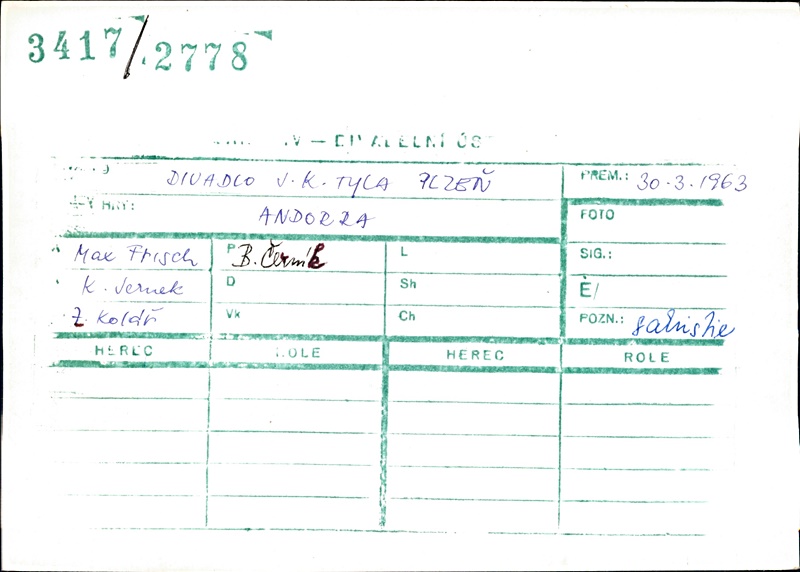 3417/2778
DIVADLO J. K. TYLA PLZEŇ
PREM.: 30.3.1963
HRY: ANDORRA
FOTO
Max Frisch
P B. Černík
L
SIG.:
D
Sh
Z. Kolář
Vk
Ch
POZN.:
HEREC
ROLE
HEREC
ROLE